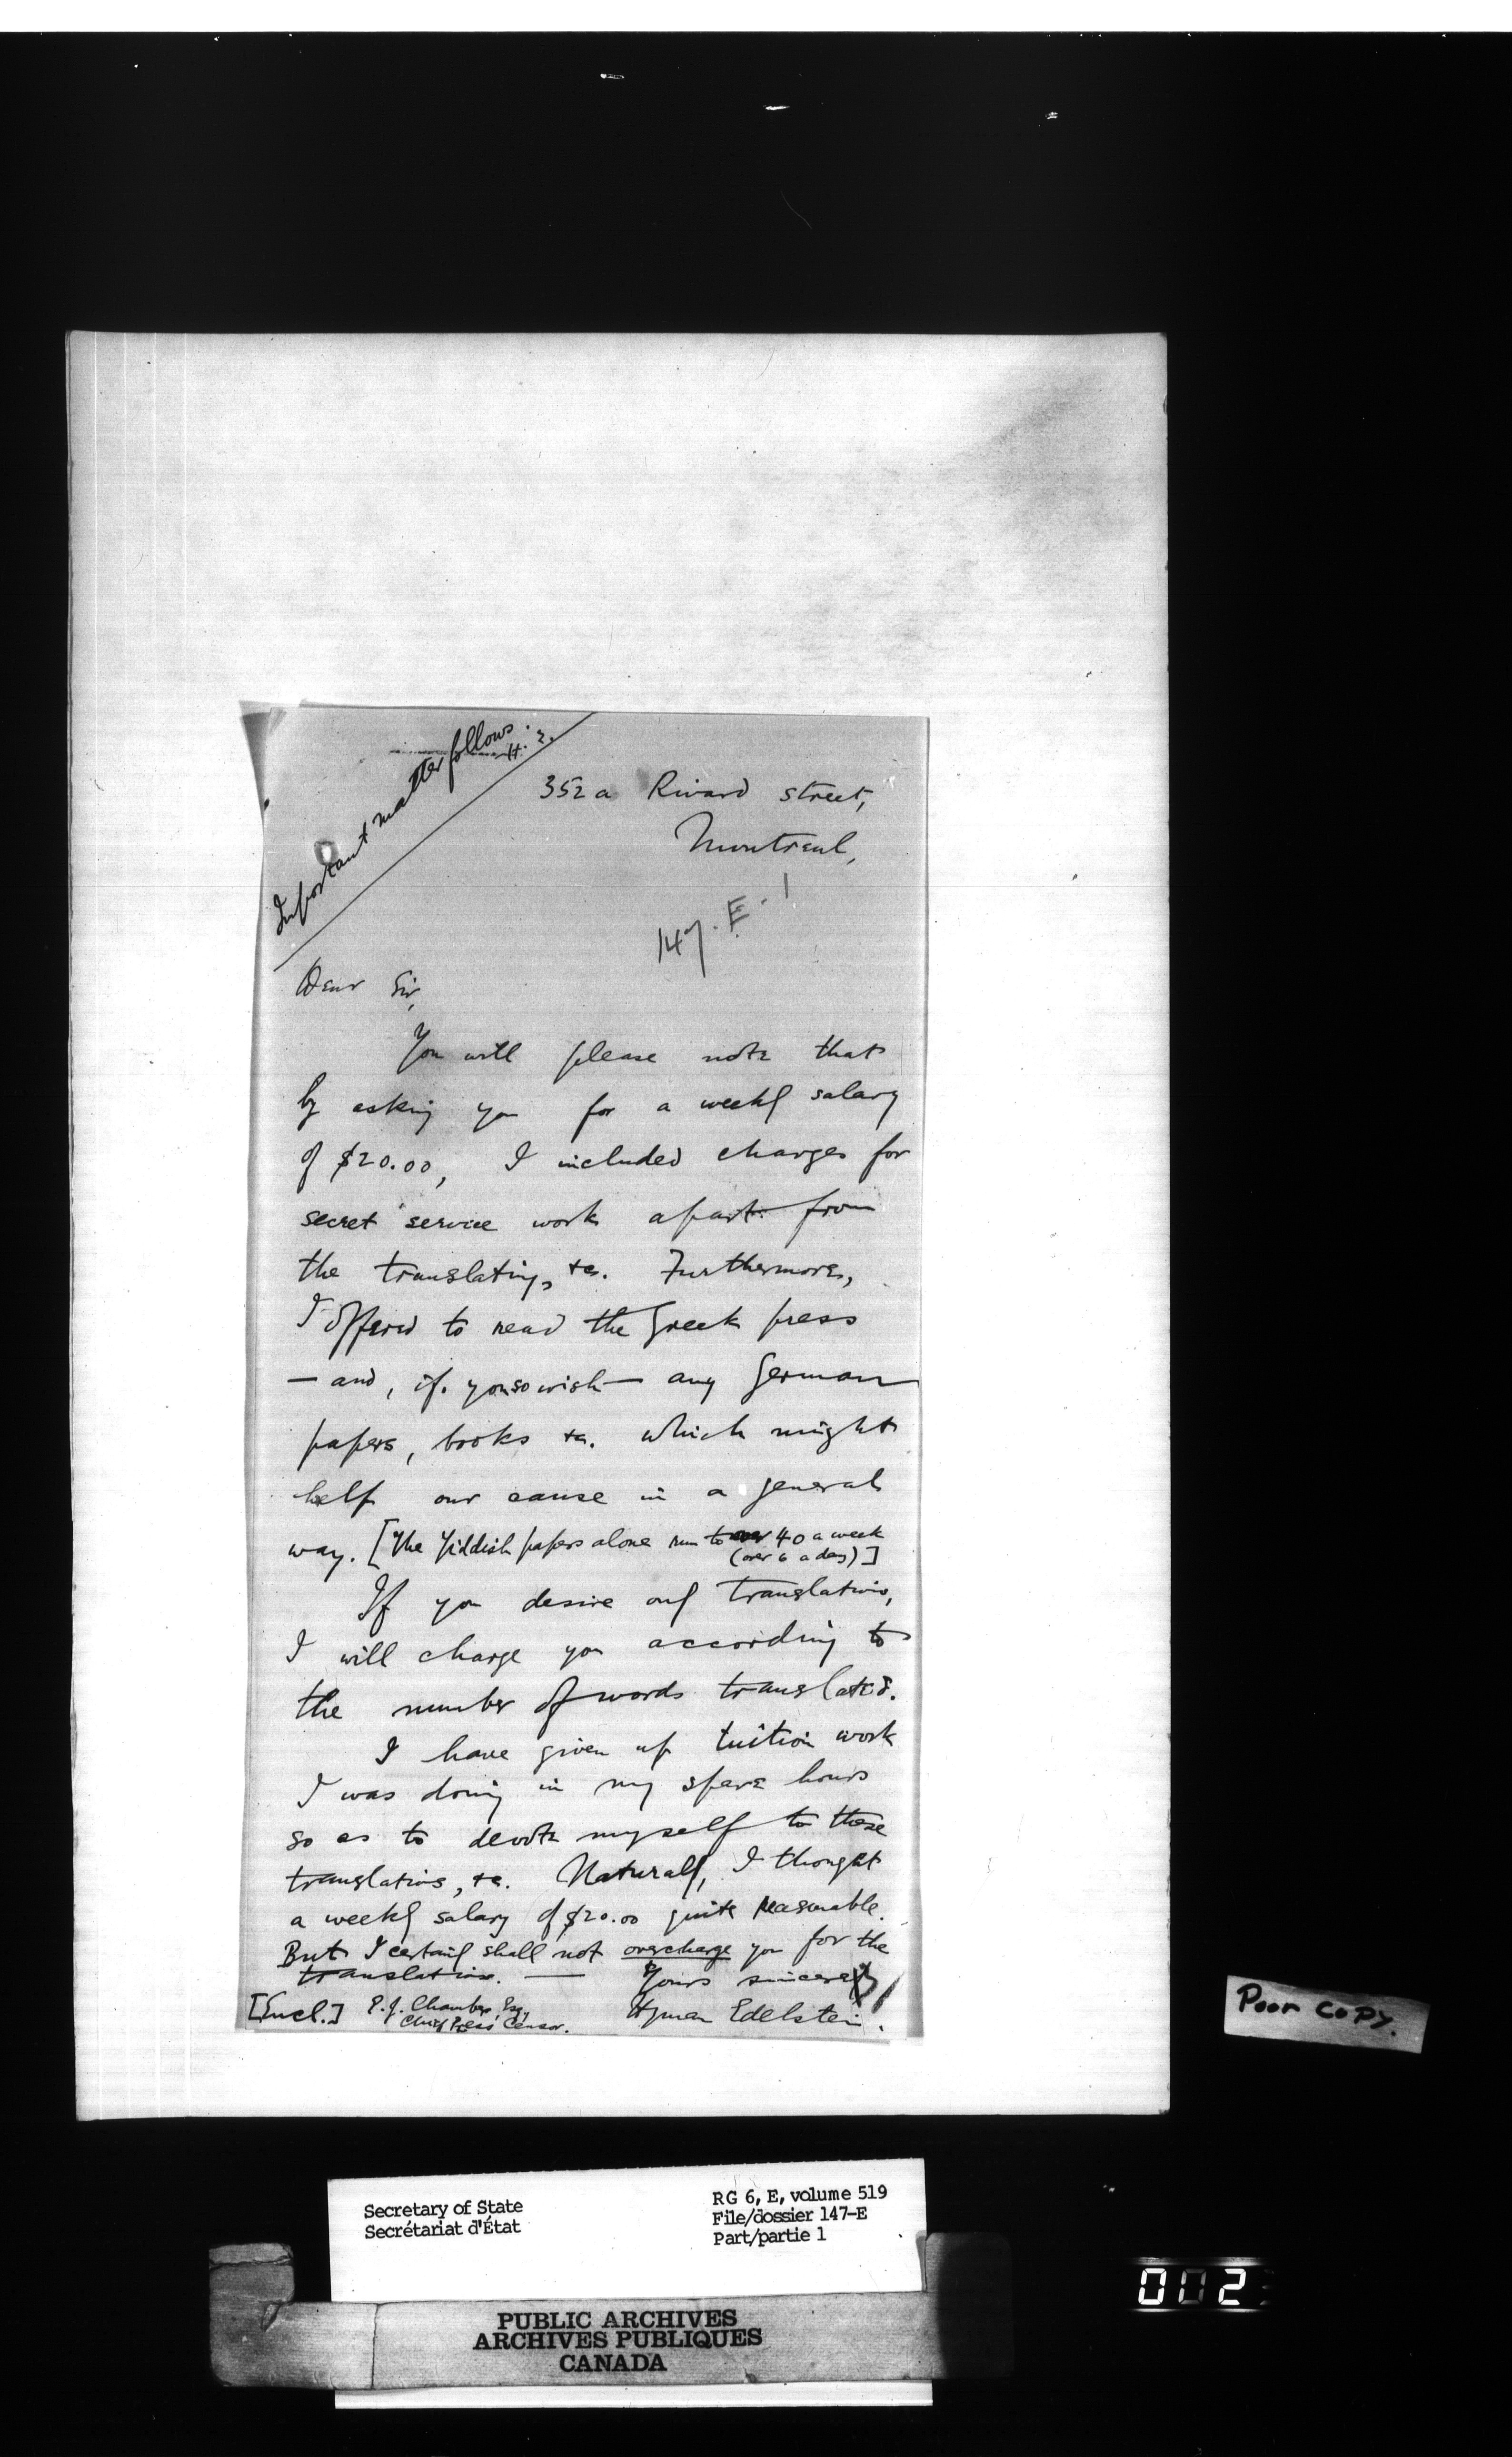 Important matter follows.
H. E.
352a Rivard street,
Montreal,
147. E. 1
Dear Sir,
You will please note that
by asking you for a weekly salary
of $20.00, I included charges for
secret service work apart from
the translating, &c. Furthermore,
I offered to read the Greek press
— and, if you so wish — any German
papers, books &c. which might
help our cause in a general
way. [The Yiddish papers alone run to over 40 a week
(over 6 a day)]
If you desire only translations,
I will charge you according to
the number of words translated.
I have given up tuition work
I was doing in my spare hours
so as to devote myself to these
translations, &c. Naturally, I thought
a weekly salary of $20.00 quite reasonable.
But I certainly shall not overcharge you for the
translations. — Yours sincerely
[Encl.] E. J. Chambers, Esq., Hyman Edelstein.
Chief Press Censor.
Poor copy.
Secretary of State
Secrétariat d'État
RG 6, E, volume 519
File/dossier 147-E
Part/partie 1
PUBLIC ARCHIVES
ARCHIVES PUBLIQUES
CANADA
002